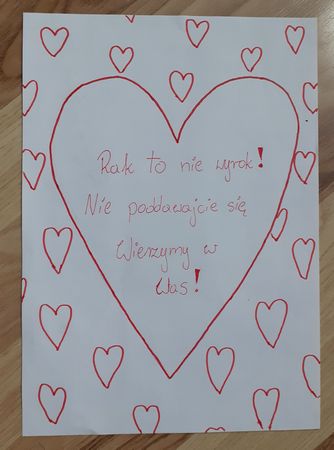 Rak to nie wyrok!
Nie poddawajcie się
Wierzymy w
Was!